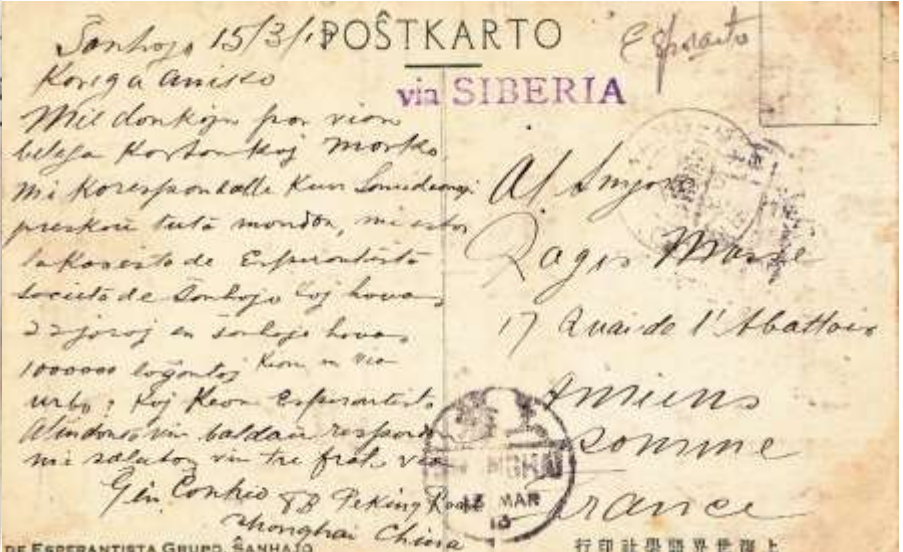 Ŝanhajo 15/3/13
POŜTKARTO
Esperanto
via SIBERIA
Kariga amiko
Mil dankojn por vian
belega karton kaj marko
mi korespondalle kun
preskaŭ tuta mondon, mi estas
la de Esperantista
societo de Ŝanhajo kaj havas
22 jaroj en Ŝanhajo havas
1000000 loĝantoj Kiom en via
urbo, kaj Kiom Esperantisto
vin baldaŭ respondon
mi salutas vin tre frat. via
8B Peking Road
Shanghai China
Al Sinjoro
Masse
17 Quai de l'Abattoir
Amiens
Somme
France
SHANGHAI
MAR
13
DE ESPERANTISTA GRUPO, ŜANHAJO
上海世界語學社印行